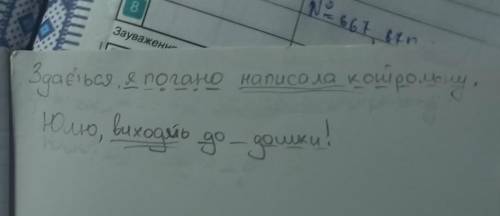 8
Зауваженн
№ 667, 67п
Здається, я погано написала контрольну.
Юлю, виходь до дошки!